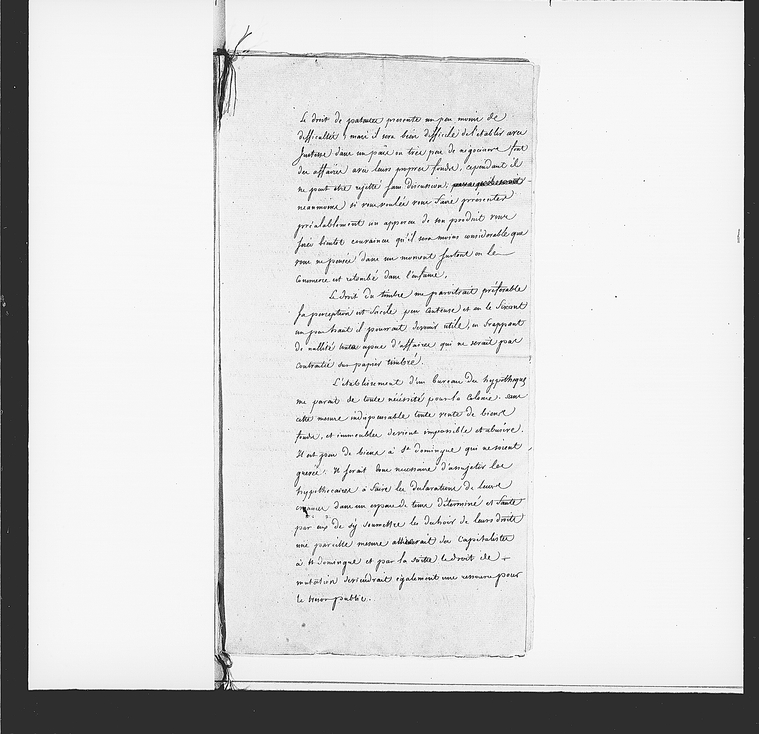 Le droit de patentes presente un peu moins de
difficultés, mais il sera bien difficile de l'etablir avec
Justesse dans un païs ou très peu de négocians font
des affaires avec leurs propres fonds, cependant il
ne peut etre rejetté sans discussion,
neanmoins si vous voulés vous faire présenter
préalablement un apperçu de son produit vous
serés bientôt convaincu qu'il sera moins considérable que
vous ne pensés dans un moment surtout ou le
Commerce est retombé dans l'enfance.
Le droit du timbre me paroitrait préférable
sa perception est facile peu couteuse et en le fixant
un peu haut il pourrait devenir utile, en frappant
de nullité toute espece d'affaires qui ne serait pas
contractée sur papier timbré.
L'établissement d'un bureau des hypothéques
me parait de toute nécéssité pour la Colonie. sans
cette mesure indispensable toute vente de biens
fonds, et immeubles devient impossible et abusive.
Il est peu de biens à St domingue qui ne soient
grevés. Il serait donc necessaire d'assujetir les
hypothécaires à faire les declarations de leurs
créances dans un espace de tems déterminé et faute
par eux de s'y soumettre les dechoir de leurs droits
une pareille mesure attirerait des Capitalistes
à St domingue et par la suitte le droit de
mutation deviendrait également une ressource pour
le tresor public.